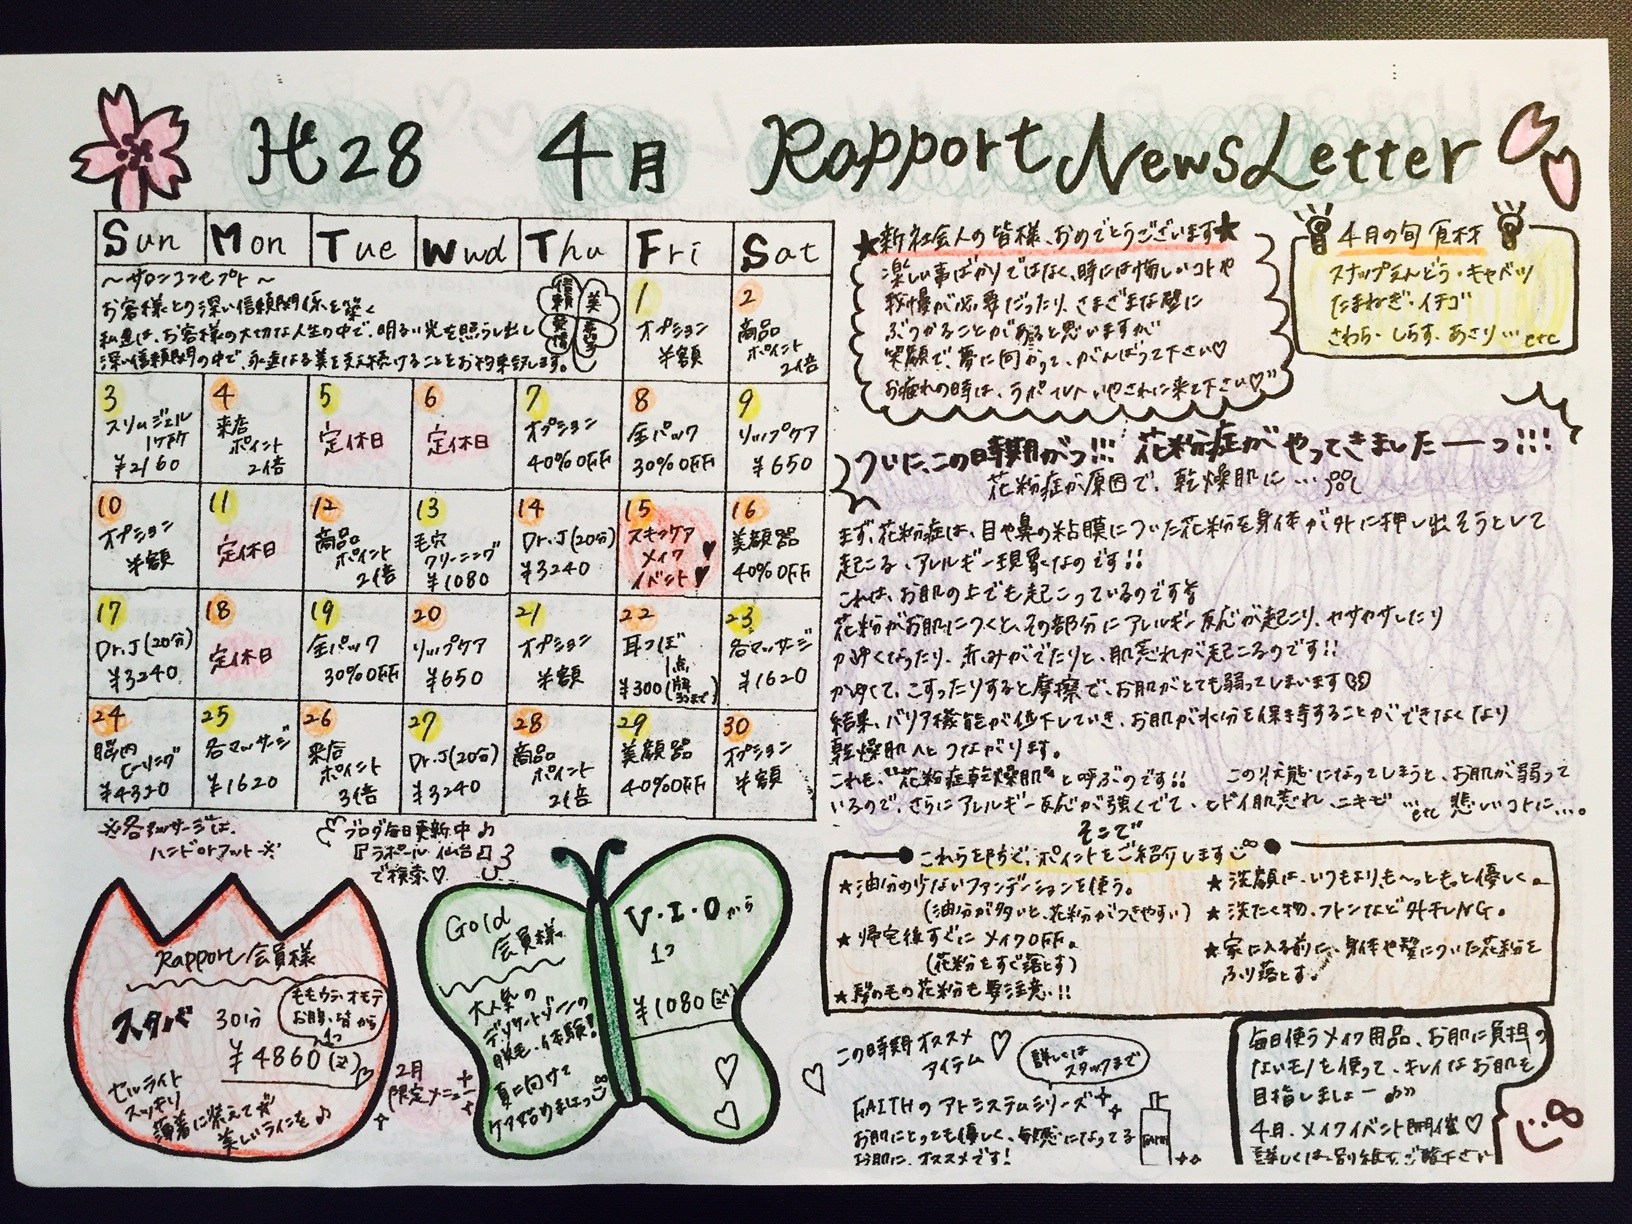 H28 4月 Rapport NewsLetter
Sun Mon Tue Wwd Thu Fri Sat
～サロンコンセプト～
お客様との深い信頼関係を築く
私達は、お客様の大切な人生の中で、明るい光を照らし出し
深い信頼関の中で、永遠なる美を支え続けることをお約束致します。
信頼
美
愛情
1
オプション
半額
2
商品
ポイント
2倍
3
スリムジェル
1ヶ所
¥2160
4
来店
ポイント
2倍
5
定休日
6
定休日
7
オプション
40%OFF
8
全パック
30%OFF
9
リップケア
¥650
10
オプション
半額
11
定休日
12
商品
ポイント
2倍
13
毛穴
クリーニング
¥1080
14
Dr.J(20分)
¥3240
15
スキンケア
メイク
イベント
16
美顔器
40%OFF
17
Dr.J(20分)
¥3240
18
定休日
19
全パック
30%OFF
20
リップケア
¥650
21
オプション
半額
22
耳つぼ
1点
¥300
23
各マッサージ
¥1620
24
眼内
ヒーリング
¥4320
25
各マッサージ
¥1620
26
来店
ポイント
3倍
27
Dr.J(20分)
¥3240
28
商品
ポイント
2倍
29
美顔器
40%OFF
30
オプション
半額
※各マッサージは、
ハンドorフット※
ブログ毎日更新中♪
『ラポール 仙台』
で検索♡
★新社会人の皆様、おめでとうございます★
楽しい事ばかりではなく、時には悔しいコトや
我慢が必要だったり、さまざまな壁に
ぶつかることがあると思いますが
笑顔で、夢に向かって、がんばって下さい♡
お疲れの時は、ラポールへいやされに来て下さい♡"
4月の旬食材
スナップえんどう・キャベツ
たまねぎ・イチゴ
さわら・しらす、あさり…etc
ついに、この時期がっ!!! 花粉症がやってきましたーっ!!!
花粉症が原因で、乾燥肌に…
まず、花粉症は、目や鼻の粘膜についた花粉を身体が外に押し出そうとして
起こる、アレルギー現象なのです!!
これは、お肌の上でも起こっているのです
花粉がお肌につくと、その部分にアレルギー反応が起こり、カサカサしたり
かゆくなったり、赤みがでたりと、肌荒れが起こるのです!!
かゆくて、こすったりすると摩擦で、お肌がとても弱ってしまいます
結果、バリア機能が低下していき、お肌が水分を保持することができなくなり
乾燥肌へとつながります。
これを、"花粉症乾燥肌"と呼ぶのです!! この状態になってしまうと、お肌が弱って
いるので、さらにアレルギー反応が強くでて、ヒドイ肌荒れ、ニキビ…etc 悲しいコトに…。
そこで
これらを防ぐ、ポイントをご紹介します
★油分の少ないファンデーションを使う。
(油分が多いと、花粉がつきやすい)
★帰宅後すぐにメイクOFF。
(花粉をすぐ落とす)
★髪の毛の花粉も要注意!!
★洗顔は、いつもよりも〜っともっと優しく。
★洗たく物、フトンなど外干しNG。
★家に入る前に、身体や髪についた花粉を
ふり落とす。
Rapport会員様
スタバ 30分
ももウラ・オモテ
お腹、背から
1つ
¥4860(込)
セルライト
スッキリ
薄着に備えて
美しいラインを♪
2月
限定メニュー
Gold
会員様
大人気の
デリケートゾーンの
脱毛、体験!
夏に向けて
ケア始めましょっ
V・I・Oから
1つ
¥1080(込)
この時期オススメ
アイテム♡
詳しくは
スタッフまで
FAITHのアトシステムシリーズ
お肌にとっても優しく、敏感になってる
お肌に、オススメです!
毎日使うメイク用品、お肌に負担の
ないモノを使って、キレイなお肌を
目指しましょー♪
4月、メイクイベント開催♡
詳しくは、別紙をご覧下さい